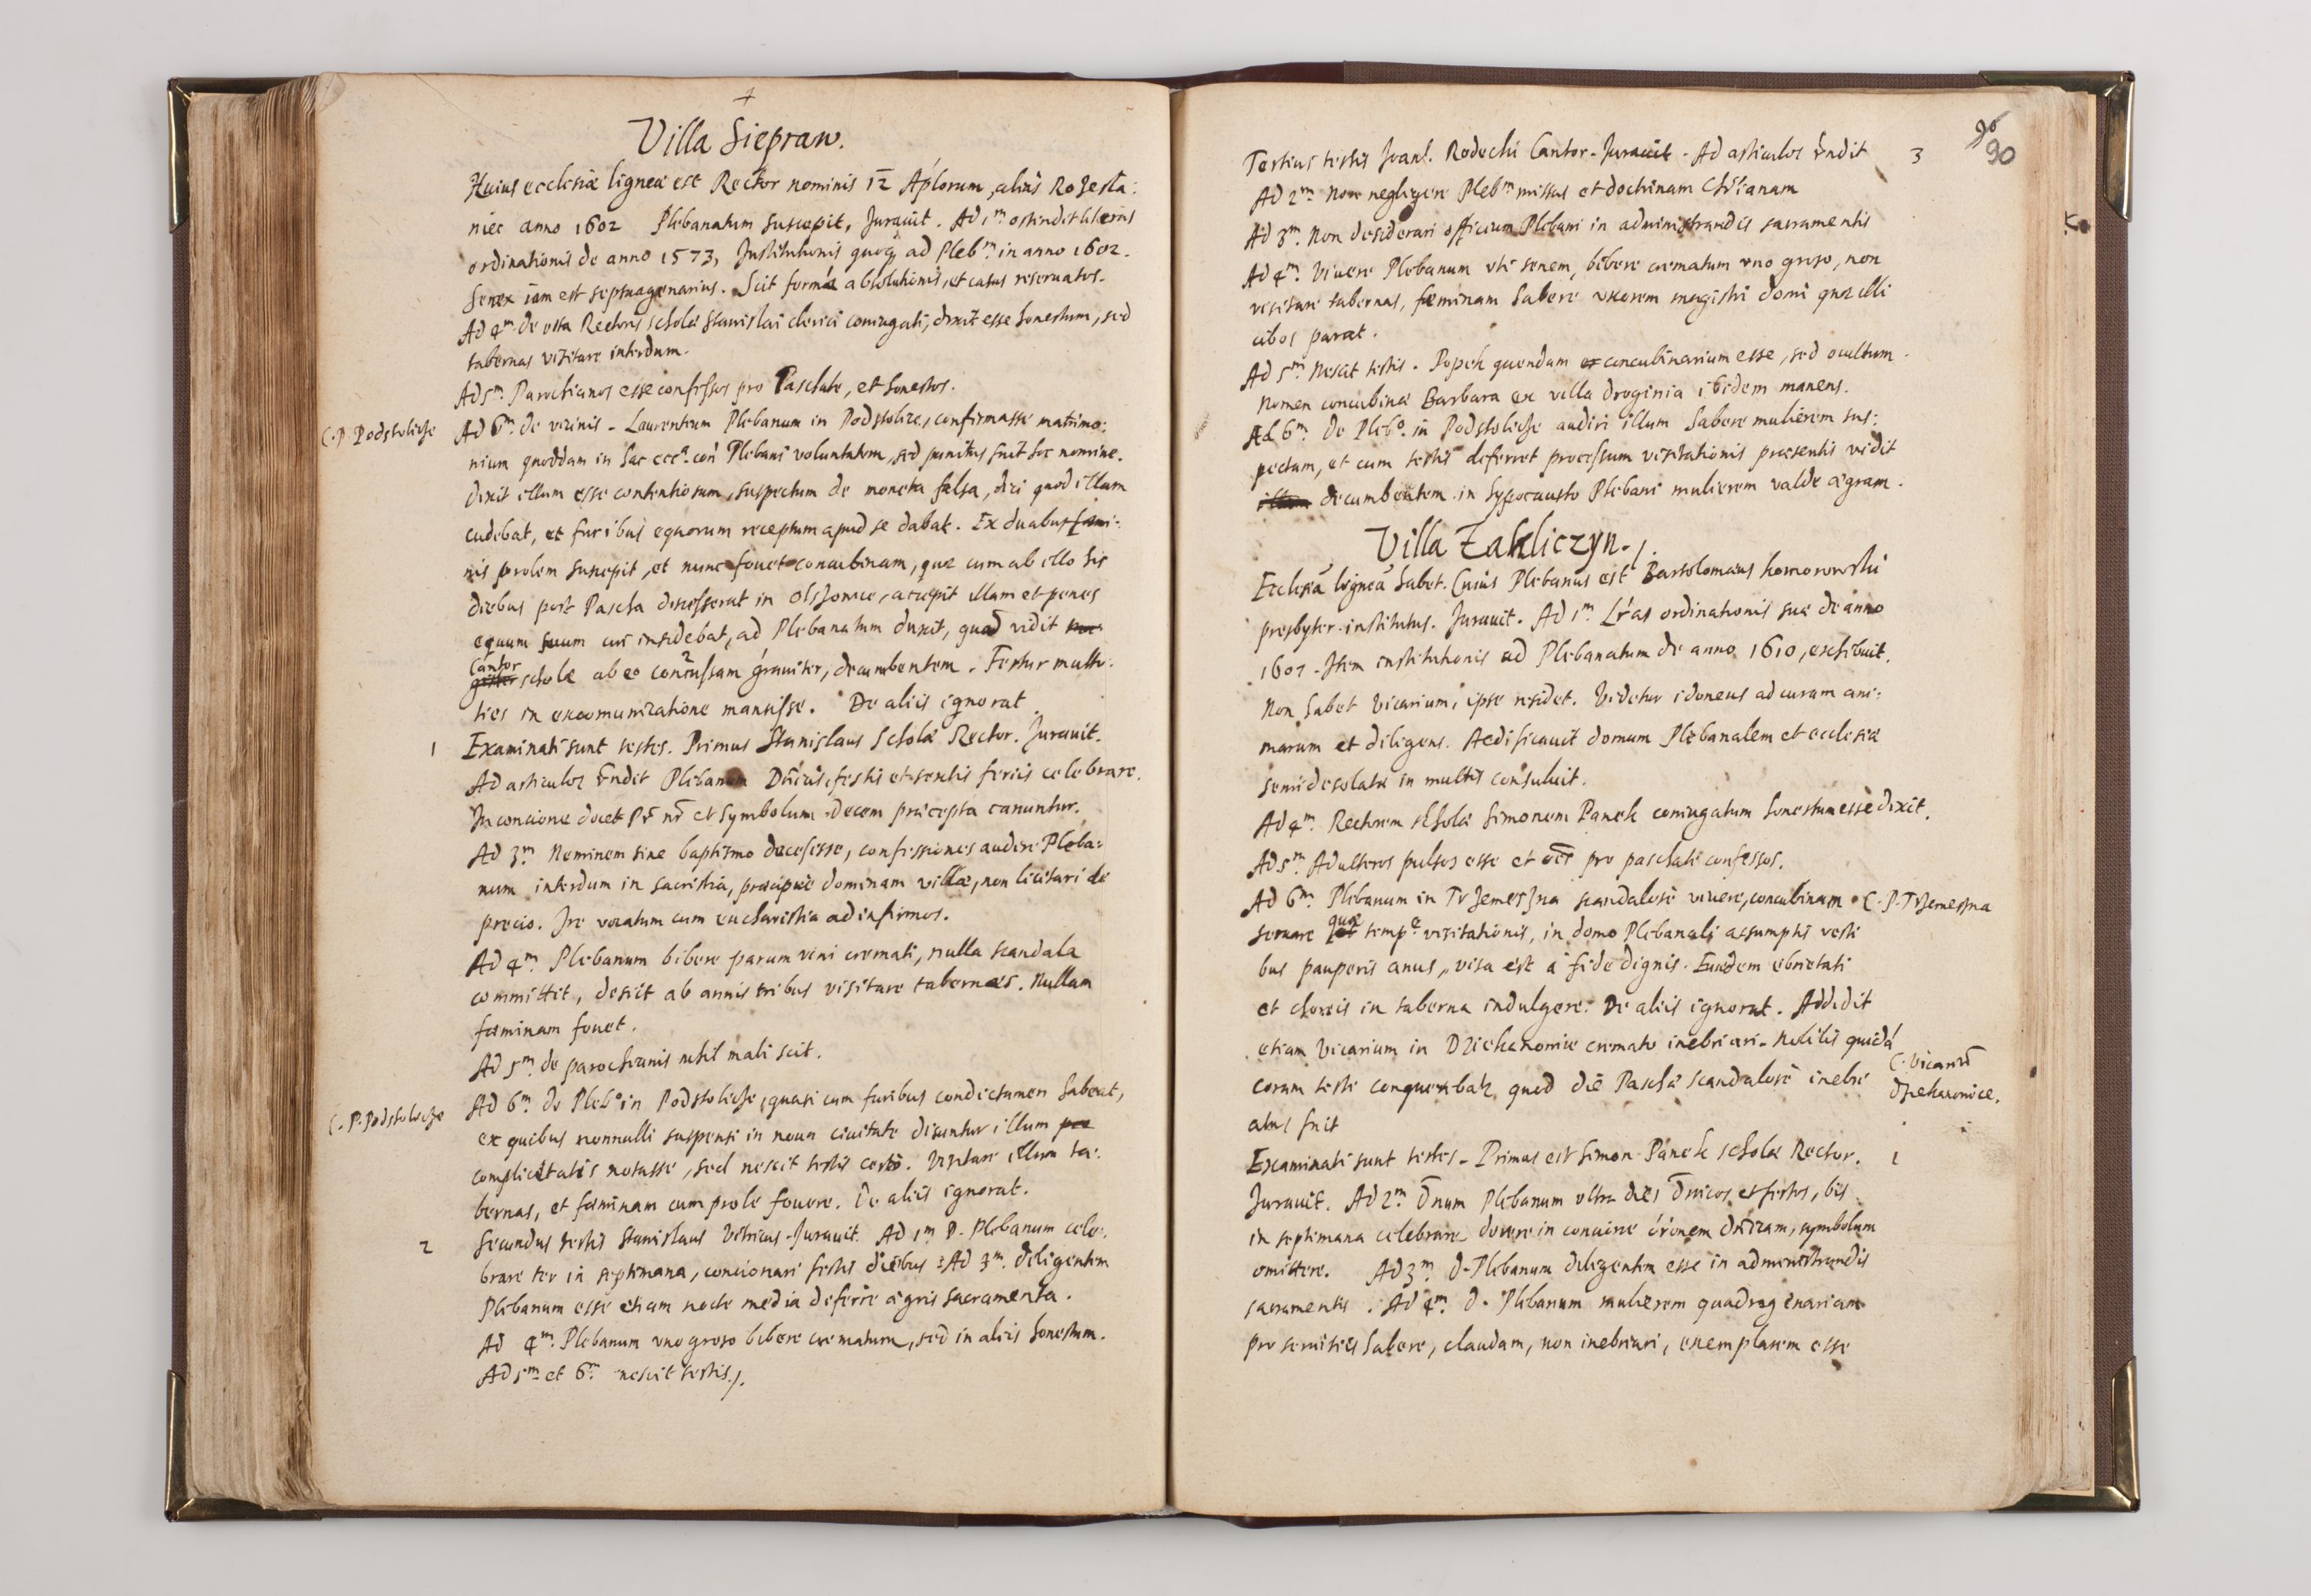 +
Villa Siepraw.
Huius ecclesiæ ligneæ est Rector nominis 12 Aplorum, alius Rozesla:
niec anno 1602 Plebanatum suscepit, Jurauit. Ad 1m ostendit literas
ordinationis de anno 1573, Institutionis quoq ad Plebm. in anno 1602.
Senex iam est septuagenarius. Scit formá absolutionis, et casus reseruatos.
Ad 4m de vita Rectoris scholæ Stanislai clerici coniugati, dixit esse honestum, sed
tabernas visitare interdum.
Ad 5m. Parochianos esse confessos pro Paschate, et honestos.
C. P. Podstolicze
Ad 6m. de vicinis - Laurentium Plebanum in Podstolice, confirmasse matrimo:
nium quoddam in hac eccª. con Plebani voluntatem, sed punitus fuit hoc nomine.
dixit illum esse contentiosum, suspectum de moneta falsa, dici quod illam
cudebat, et furibus equorum receptum apud se dabat. Ex duabus fæmi:
nis prolem suscepit, et nunc fouet concubinam, quæ cum ab illo his
diebus post Pascha discesserat in Olszowice, accepit illam et penes
equum suum cui insidebat, ad Plebanatum duxit, quod vidit
Cantor
scholæ ab eo contussam grauiter, decumbentem. Fertur multo:
ties in excomunicatione mansisse. De aliis ignorat
1 Examinati sunt testes. Primus Stanislaus Scholæ Rector. Jurauit.
Ad articulos rndit Plebanum Dnicis, festis et sextis feriis celebrare.
In concione docet Pr nr et Symbolum decem præcepta canuntur.
Ad 3m Neminem sine baptismo decessisse, confessiones audire Pleba:
num interdum in sacristia, præcipuè dominam villæ, non licitari de
precio. Ire vocatum cum eucharistia ad infirmos.
Ad 4m. Plebanum bibere parum vini cremati, nulla scandala
committit, desiit ab annis tribus visitare tabernas. Nullam
fæminam fouet.
Ad 5m. de parochianis nihil mali scit.
C. P. Podstolicze
Ad 6m. de Plebo in Podstolicze, quasi cum furibus condictamen habeat,
ex quibus nonnulli suspensi in noua ciuitate dicuntur illum
complicitatis notasse, sed nescit testis certò. Visitare illum ta:
bernas, et fæminam cum prole fouere. De aliis ignorat.
2 Secundus testis Stanislaus Vitricus - Jurauit. Ad 1m D. Plebanum cele:
brare ter in septimana, concionari festis diebus. Ad 3m. diligentem
Plebanum esse etiam nocte media deferre ægris sacramenta.
Ad 4m. Plebanum uno groso bibere crematum, sed in aliis honestum.
Ad 5m et 6m nescit testis./.
90
90
Tertius testis Joanl. Rodechi Cantor - Jurauit - Ad articulos rndit 3
Ad 2m Non negligere Plebm missas et doctrinam Chrianam
Ad 3m. Non desiderari officium Plebani in administrandis sacramentis
Ad 4m. Viuere Plebanum vti senem, bibere crematum vno groso, non
visitare tabernas, fæminam habere vxorem magistri domi quæ illi
cibos parat.
Ad 5m Nescit testis. Popek quendam concubinarium esse, sed ocultum.
Nomen concubinæ Barbara ex villa droginia ibidem manens.
Ad 6m. De Plebo. in Podstolicze audiri illum habere mulierem sus:
pectam, et cum testis deferret processum visitationis præsentis vidit
decumbentem in hypocausto Plebani mulierem valde ægram.
Villa Zakliczyn./.
Ecclesiá ligneá habet. Cuius Plebanus est Bartolomæus Komorowski
presbyter institutus. Jurauit. Ad 1m. Lras ordinationis suæ de anno
1607 - Item institutionis ad Plebanatum de anno 1610, exhibuit.
Non habet Vicarium, ipse residet. Videtur idoneus ad curam ani:
marum et diligens. Aedificauit domum Plebanalem et ecclesiæ
semidesolatæ in multis consuluit.
Ad 4m. Rectorem scholæ Simonem Panek coniugatum honestum esse dixit.
Ad 5m Adulteros pulsos esse et oēs pro paschate confessos.
Ad 6m. Plebanum in Trzemeszna scandalosè viuere, concubinam C. P. Trzemesna
quæ
seruare tempe visitationis, in domo Plebanali assumptis vesti
bus pauperis anus, visa est à fide dignis. Eundem ebrietati
et choreis in taberna indulgere. De aliis ignorat. Addidit
etiam Vicarium in Dziekanowice cremato inebriari - Nobilis quidá
C. Vicarius
coram teste conquerebatr quod die Paschæ scandalosè inebri
dziekanowice.
atus fuit
Examinati sunt testes - Primus est Simon Panek scholæ Rector. 1
Jurauit. Ad 2m Dnum Plebanum vltra dies Dnicos et festos, bis
in septimana celebrare docere in concione oronem dnicam, symbolum
omittere. Ad 3m. d. Plebanum diligentem esse in administrandis
sacramentis. Ad 4m. d. Plebanum mulierem quadragenariam
pro seruitiis habere, claudam, non inebriari, exemplarem esse